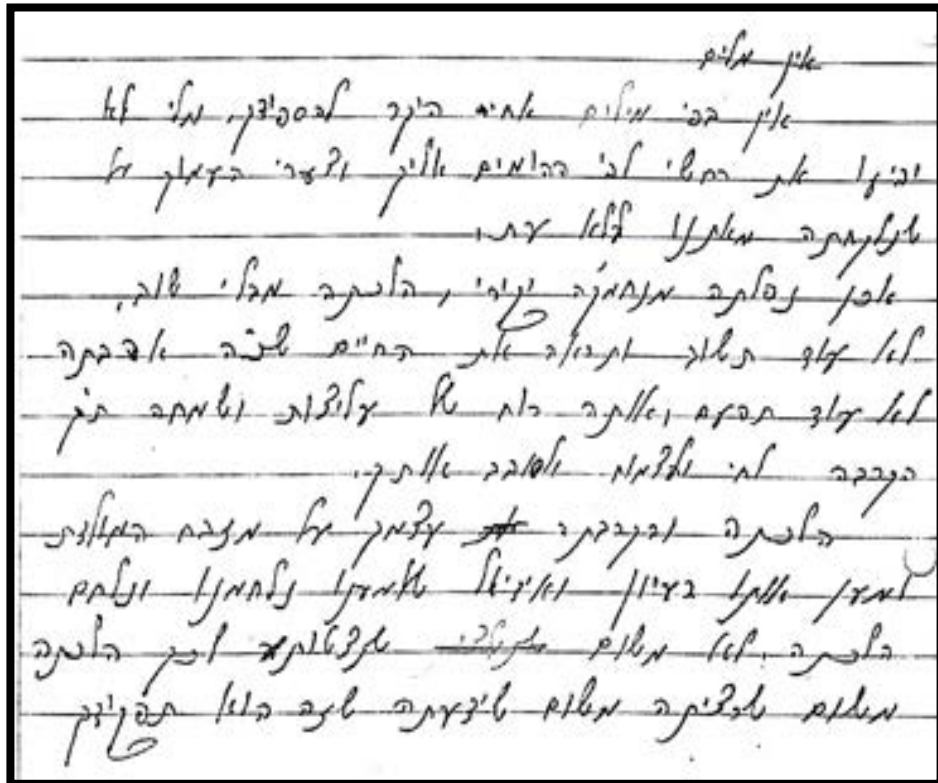 אין מלים
אין בפי מילים אחי היקר להספידך, מלי לא
יביעו את רחשי לבי ההומים אליך וצערי העמוק על
שנלקחתה מאתנו ללא עת.
אכן נפלתה מנחמק'ה יקירי, הלכתה מבלי שוב,
לא עוד תשוב ותראה את החיים שכ"כ אהבתה
לא עוד תפעם אותה רוח של עליצות ושמחה
הקרבה לחי ולצמח ולסובב אותך.
הלכתה והקרבתה עצמך על מזבח המולדת
למען אותו רעיון ואידיאל שלמענו נלחמנו ונלחם
הלכתה, לא משום שנצטותה לכך הלכתה
משום שרציתה משום שידעתה שזה הוא תפקידך